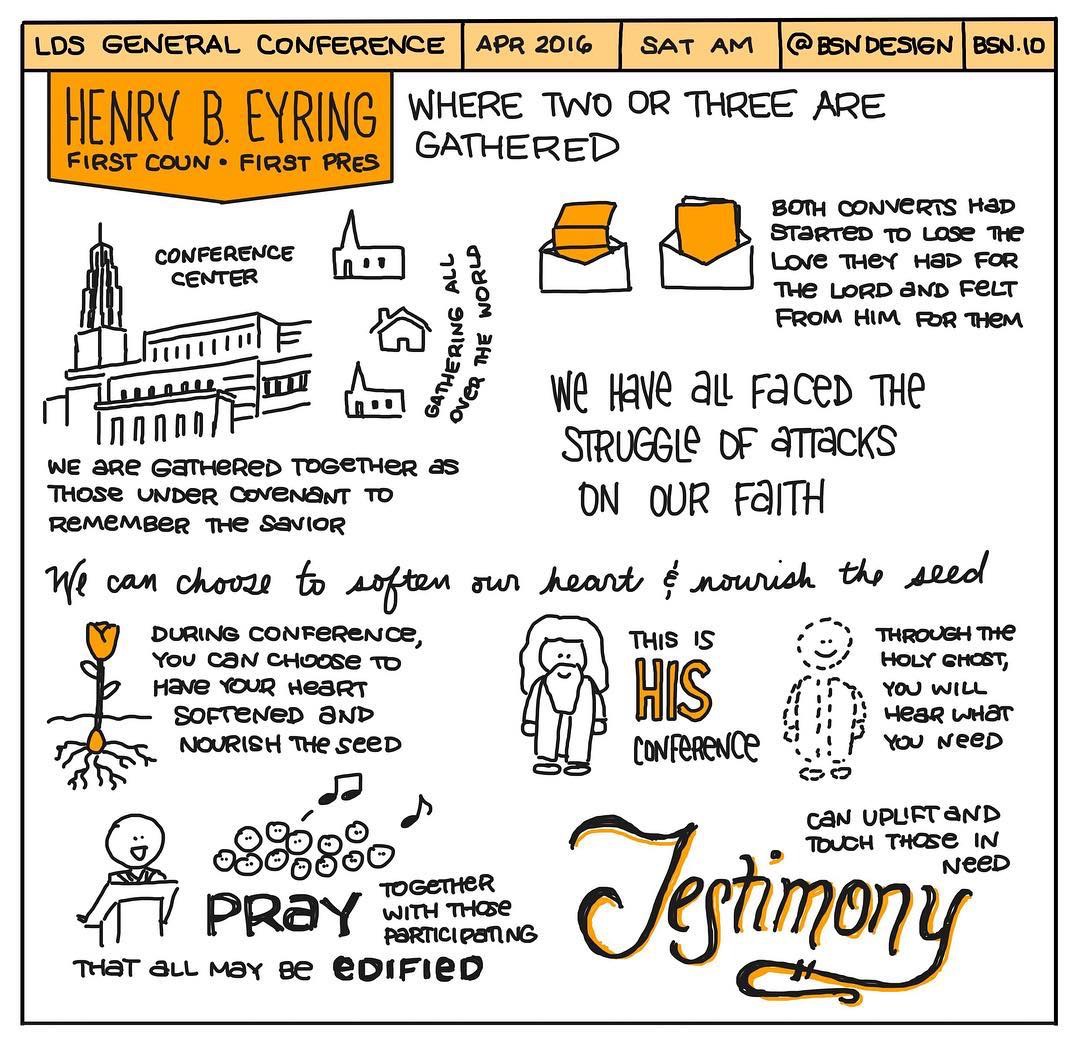 LDS GENERAL CONFERENCE
APR 2016
SAT AM
@BSNDESIGN
BSN.IO
HENRY B. EYRING
FIRST COUN • FIRST PRES
WHERE TWO OR THREE ARE
GATHERED
CONFERENCE
CENTER
GATHERING ALL
OVER THE WORLD
WE ARE GATHERED TOGETHER AS
THOSE UNDER COVENANT TO
REMEMBER THE SAVIOR
BOTH CONVERTS HAD
STARTED TO LOSE THE
LOVE THEY HAD FOR
THE LORD AND FELT
FROM HIM FOR THEM
WE HAVE ALL FACED THE
STRUGGLE OF ATTACKS
ON OUR FAITH
We can choose to soften our heart & nourish the seed
DURING CONFERENCE,
YOU CAN CHOOSE TO
HAVE YOUR HEART
SOFTENED AND
NOURISH THE SEED
THIS IS
HIS
CONFERENCE
THROUGH THE
HOLY GHOST,
YOU WILL
HEAR WHAT
YOU NEED
PRAY
TOGETHER
WITH THOSE
PARTICIPATING
THAT ALL MAY BE EDIFIED
CAN UPLIFT AND
TOUCH THOSE IN
NEED
Testimony